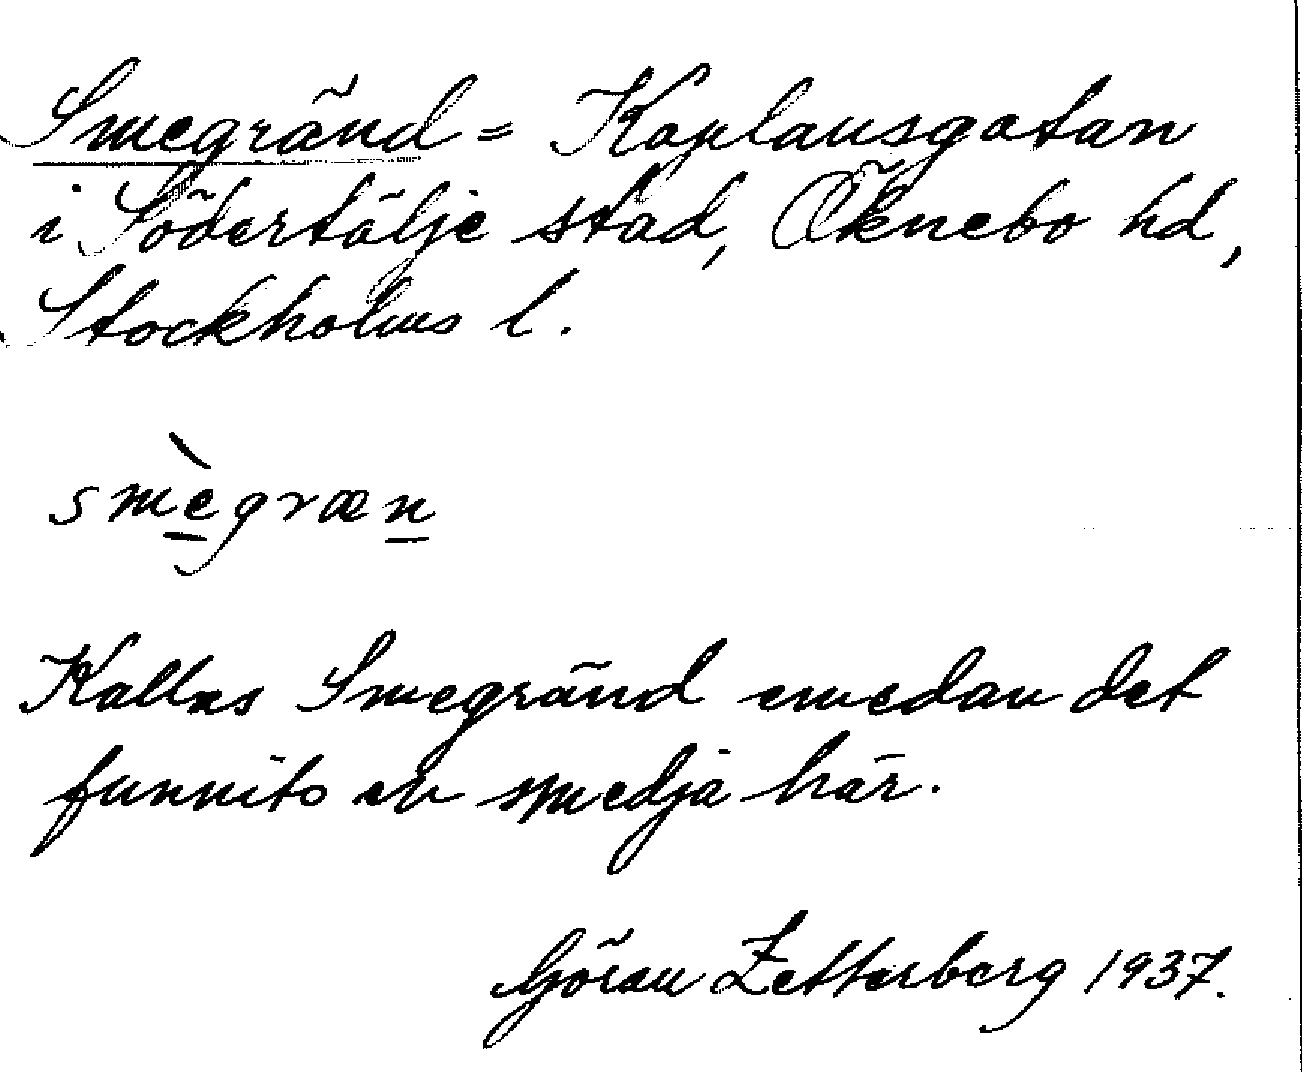 Smegränd = Kaplansgatan
i Södertälje stad, Öknebo hd,
Stockholms l.
smègræn
Kallas Smegränd emedan det
funnits en smedja här.
Göran Zetterberg 1937.